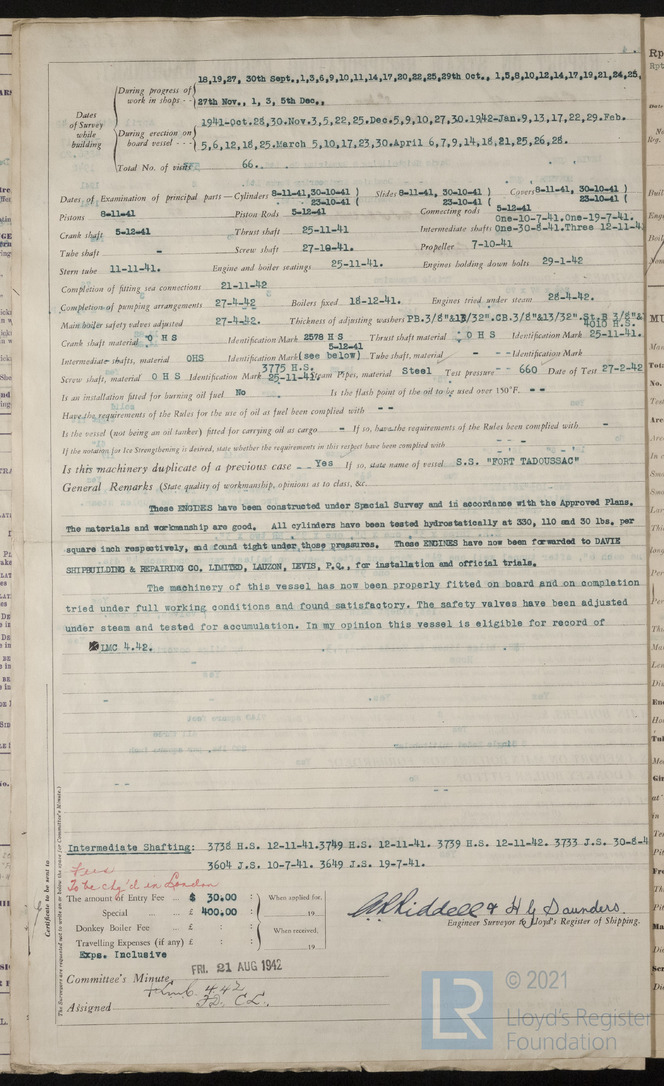 18,19,27, 30th Sept.,1,3,6,9,10,11,14,17,20,22,25,29th Oct., 1,5,8,10,12,14,17,19,21,24,25,
During progress of work in shops - - 27th Nov., 1, 3, 5th Dec.,
Dates of Survey while building
During erection on board vessel - - - 1941-Oct.28,30.Nov.3,5,22,25.Dec.5,9,10,27,30.1942-Jan.9,13,17,22,29.Feb.
5,6,12,18,25.March 5,10,17,23,30.April 6,7,9,14,18,21,25,26,28.
Total No. of visits 66.
Dates of Examination of principal parts—Cylinders 8-11-41,30-10-41 ) Slides 8-11-41, 30-10-41 ) Covers 8-11-41, 30-10-41 )
23-10-41 ( 23-10-41 ( 23-10-41 (
Pistons 8-11-41 Piston Rods 5-12-41 Connecting rods 5-12-41
Crank shaft 5-12-41 Thrust shaft 25-11-41 Intermediate shafts One-10-7-41.One-19-7-41. One-30-8-41.Three 12-11-41
Tube shaft - Screw shaft 27-10-41. Propeller 7-10-41
Stern tube 11-11-41. Engine and boiler seatings 25-11-41. Engines holding down bolts 29-1-42
Completion of fitting sea connections 21-11-42
Completion of pumping arrangements 27-4-42 Boilers fixed 18-12-41. Engines tried under steam 28-4-42.
Main boiler safety valves adjusted 27-4-42. Thickness of adjusting washers PB.3/8"&13/32".CB.3/8"&13/32".St.B 3/8"&
4015 H.S.
Crank shaft material O H S Identification Mark 2578 H S 5-12-41 Thrust shaft material O H S Identification Mark 25-11-41.
Intermediate shafts, material OHS Identification Mark (see below) Tube shaft, material - - - Identification Mark
Screw shaft, material O H S Identification Mark 3775 H.S. 25-11-41 Steam Pipes, material Steel Test pressure - - 660 Date of Test 27-2-42
Is an installation fitted for burning oil fuel No Is the flash point of the oil to be used over 150°F. - -
Have the requirements of the Rules for the use of oil as fuel been complied with - -
Is the vessel (not being an oil tanker) fitted for carrying oil as cargo - If so, have the requirements of the Rules been complied with -
If the notation for Ice Strengthening is desired, state whether the requirements in this respect have been complied with - -
Is this machinery duplicate of a previous case - - Yes If so, state name of vessel S.S. "FORT TADOUSSAC"
General Remarks (State quality of workmanship, opinions as to class, &c.
These ENGINES have been constructed under Special Survey and in accordance with the Approved Plans.
The materials and workmanship are good. All cylinders have been tested hydrostatically at 330, 110 and 30 lbs. per
square inch respectively, and found tight under those pressures. These ENGINES have now been forwarded to DAVIE
SHIPBUILDING & REPAIRING CO. LIMITED, LAUZON, LEVIS, P.Q., for installation and official trials.
The machinery of this vessel has now been properly fitted on board and on completion
tried under full working conditions and found satisfactory. The safety valves have been adjusted
under steam and tested for accumulation. In my opinion this vessel is eligible for record of
LMC 4.42.
Intermediate Shafting: 3738 H.S. 12-11-41.3749 H.S. 12-11-41. 3739 H.S. 12-11-42. 3733 J.S. 30-8-4
3604 J.S. 10-7-41. 3649 J.S. 19-7-41.
Fees
To be chg'd in London
The amount of Entry Fee ... $ 30.00 : When applied for,
Special ... ... £ 400.00 : 19
Donkey Boiler Fee ... £ : : When received,
Travelling Expenses (if any) £ : : 19
Exps. Inclusive
A Riddell & H G Saunders.
Engineer Surveyor to Lloyd's Register of Shipping.
Committee's Minute FRI. 21 AUG 1942
+ Lmc 4.42
Assigned F.D. C.L.
Certificate to be sent to
The Surveyors are requested not to write on or below the space for Committee's Minute.
© 2021
Lloyd's Register
Foundation
LR